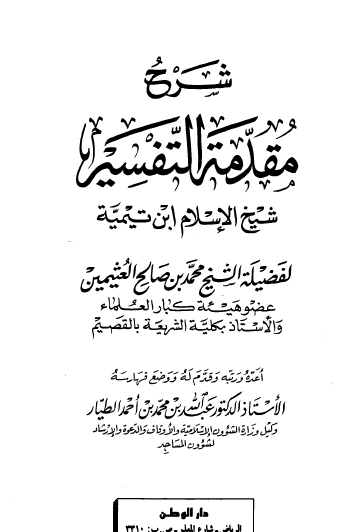 شرح
مقدمة التفسير
شيخ الإسلام ابن تيمية
لفضيلة الشيخ محمد بن صالح العثيمين
عضو هيئة كبار العلماء
والأستاذ بكلية الشريعة بالقصيم
أعده ورتبه وقدم له ووضع فهارسه
الأستاذ الدكتور عبد الله بن محمد بن أحمد الطيار
وكيل وزارة الشؤون الإسلامية والأوقاف والدعوة والإرشاد
لشؤون المساجد
دار الوطن
الرياض - شارع المعذر - ص. ب: ٣٣١٠